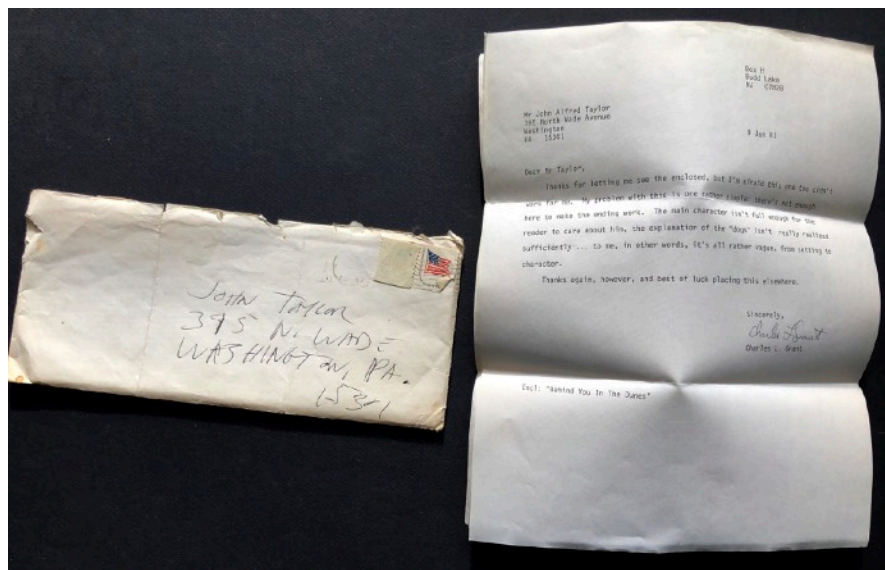 JOHN TAYLOR
395 N. WADE
WASHINGTON, PA.
15301
Box H
Budd Lake
NJ 07828
Mr John Alfred Taylor
395 North Wade Avenue
Washington
PA 15301
9 Jan 81
Dear Mr Taylor,
Thanks for letting me see the enclosed, but I'm afraid this one too didn't
work for me. My problem with this is one rather simple: there's not enough
here to make the ending work. The main character isn't full enough for the
reader to care about him, the explanation of the "dogs" isn't really realized
sufficiently ... to me, in other words, it's all rather vague, from setting to
character.
Thanks again, however, and best of luck placing this elsewhere.
Sincerely,
Charles L. Grant
Charles L. Grant
Encl: "Behind You In The Dunes"